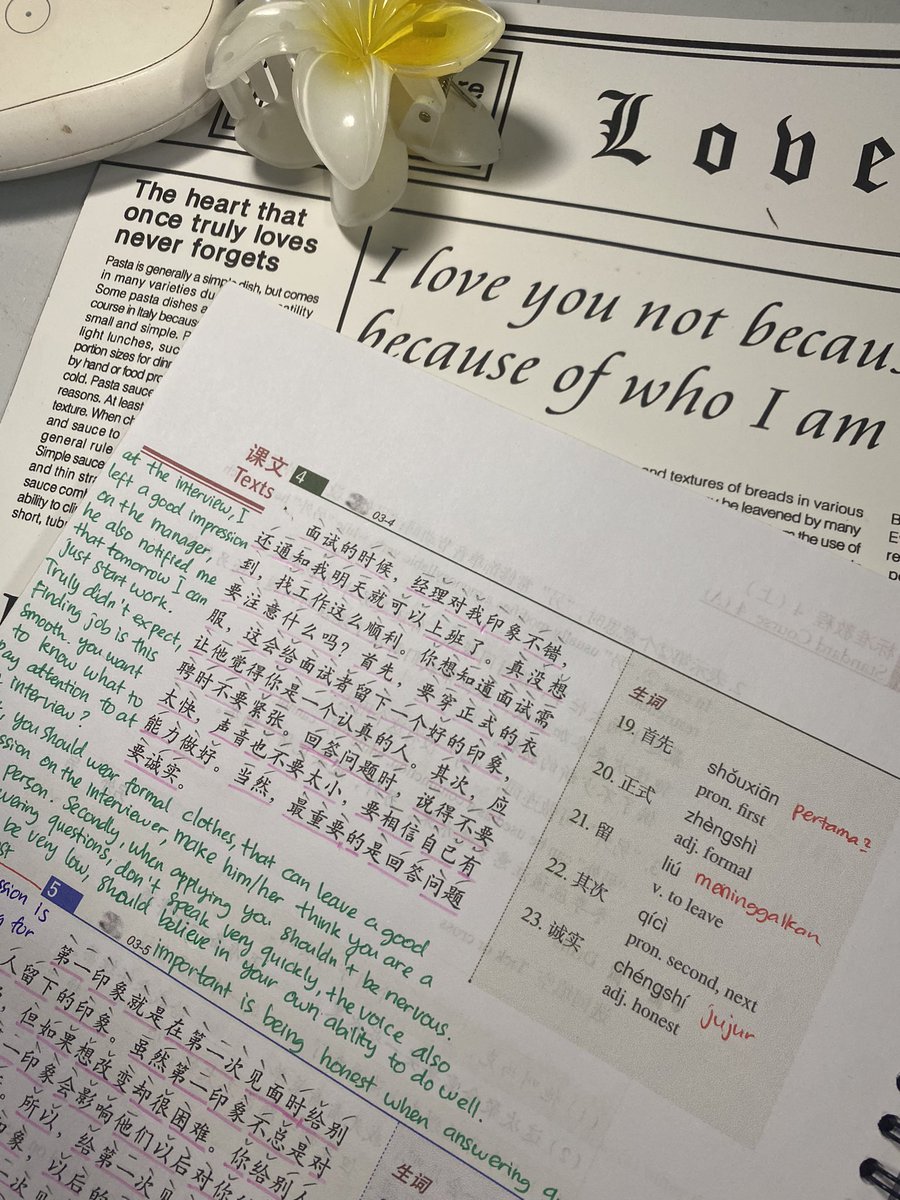 re
Love
The heart that
once truly loves
never forgets
Pasta is generally a simple dish, but comes
in many varieties du
Some pasta dishes a
course in Italy because
small and simple. P
light lunches, suc
portion sizes for dinn
by hand or food pro
cold. Pasta sauce
reasons. At least
texture. When ch
and sauce to
general rule
Simple sauce
and thin stra
sauce com
ability to cli
short, tub
I love you not becaus
because of who I am
nd textures of breads in various
be leavened by many
the use of
课文 4
Texts
03-4
面试的时候，经理对我印象不错，
还通知我明天就可以上班了。真没想
到，找工作这么顺利。你想知道面试需
要注意什么吗？首先，要穿正式的衣
服，这会给面试者留下一个好的印象，
让他觉得你是一个认真的人。其次，应
聘时不要紧张。回答问题时，说得不要
太快，声音也不要太小，要相信自己有
能力做好。当然，最重要的是回答问题
要诚实。
at the interview, I
left a good impression
on the manager,
he also notified me
that tomorrow I can
just start work.
Truly didn't expect,
finding job is this
smooth. you want
to know what to
pay attention to at
interview?
you should wear formal clothes, that can leave a good
ssion on the interviewer, make him/her think you are a
person. Secondly, when applying you shouldn't be nervous.
wering questions, don't speak very quickly, the voice also
be very low, should believe in your own ability to do well.
important is being honest when answering q
生词
19. 首先 shǒuxiān
pron. first pertama2
20. 正式 zhèngshì
adj. formal
21. 留 liú
v. to leave meninggalkan
22. 其次 qícì
pron. second, next
23. 诚实 chéngshí
adj. honest jujur
ssion is
for
5
03-5
第一印象就是在第一次见面时给别
人留下的印象。虽然第一印象不总是对
，但如果想改变却很困难。你给别人
一印象会影响他们以后对你
。所以，给第一次见
象，以后的
生词